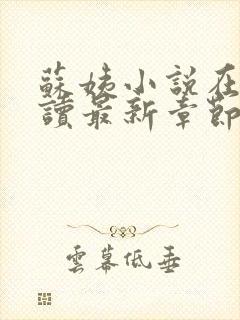 蘇姨小說在
讀最新章節
雲幕低垂